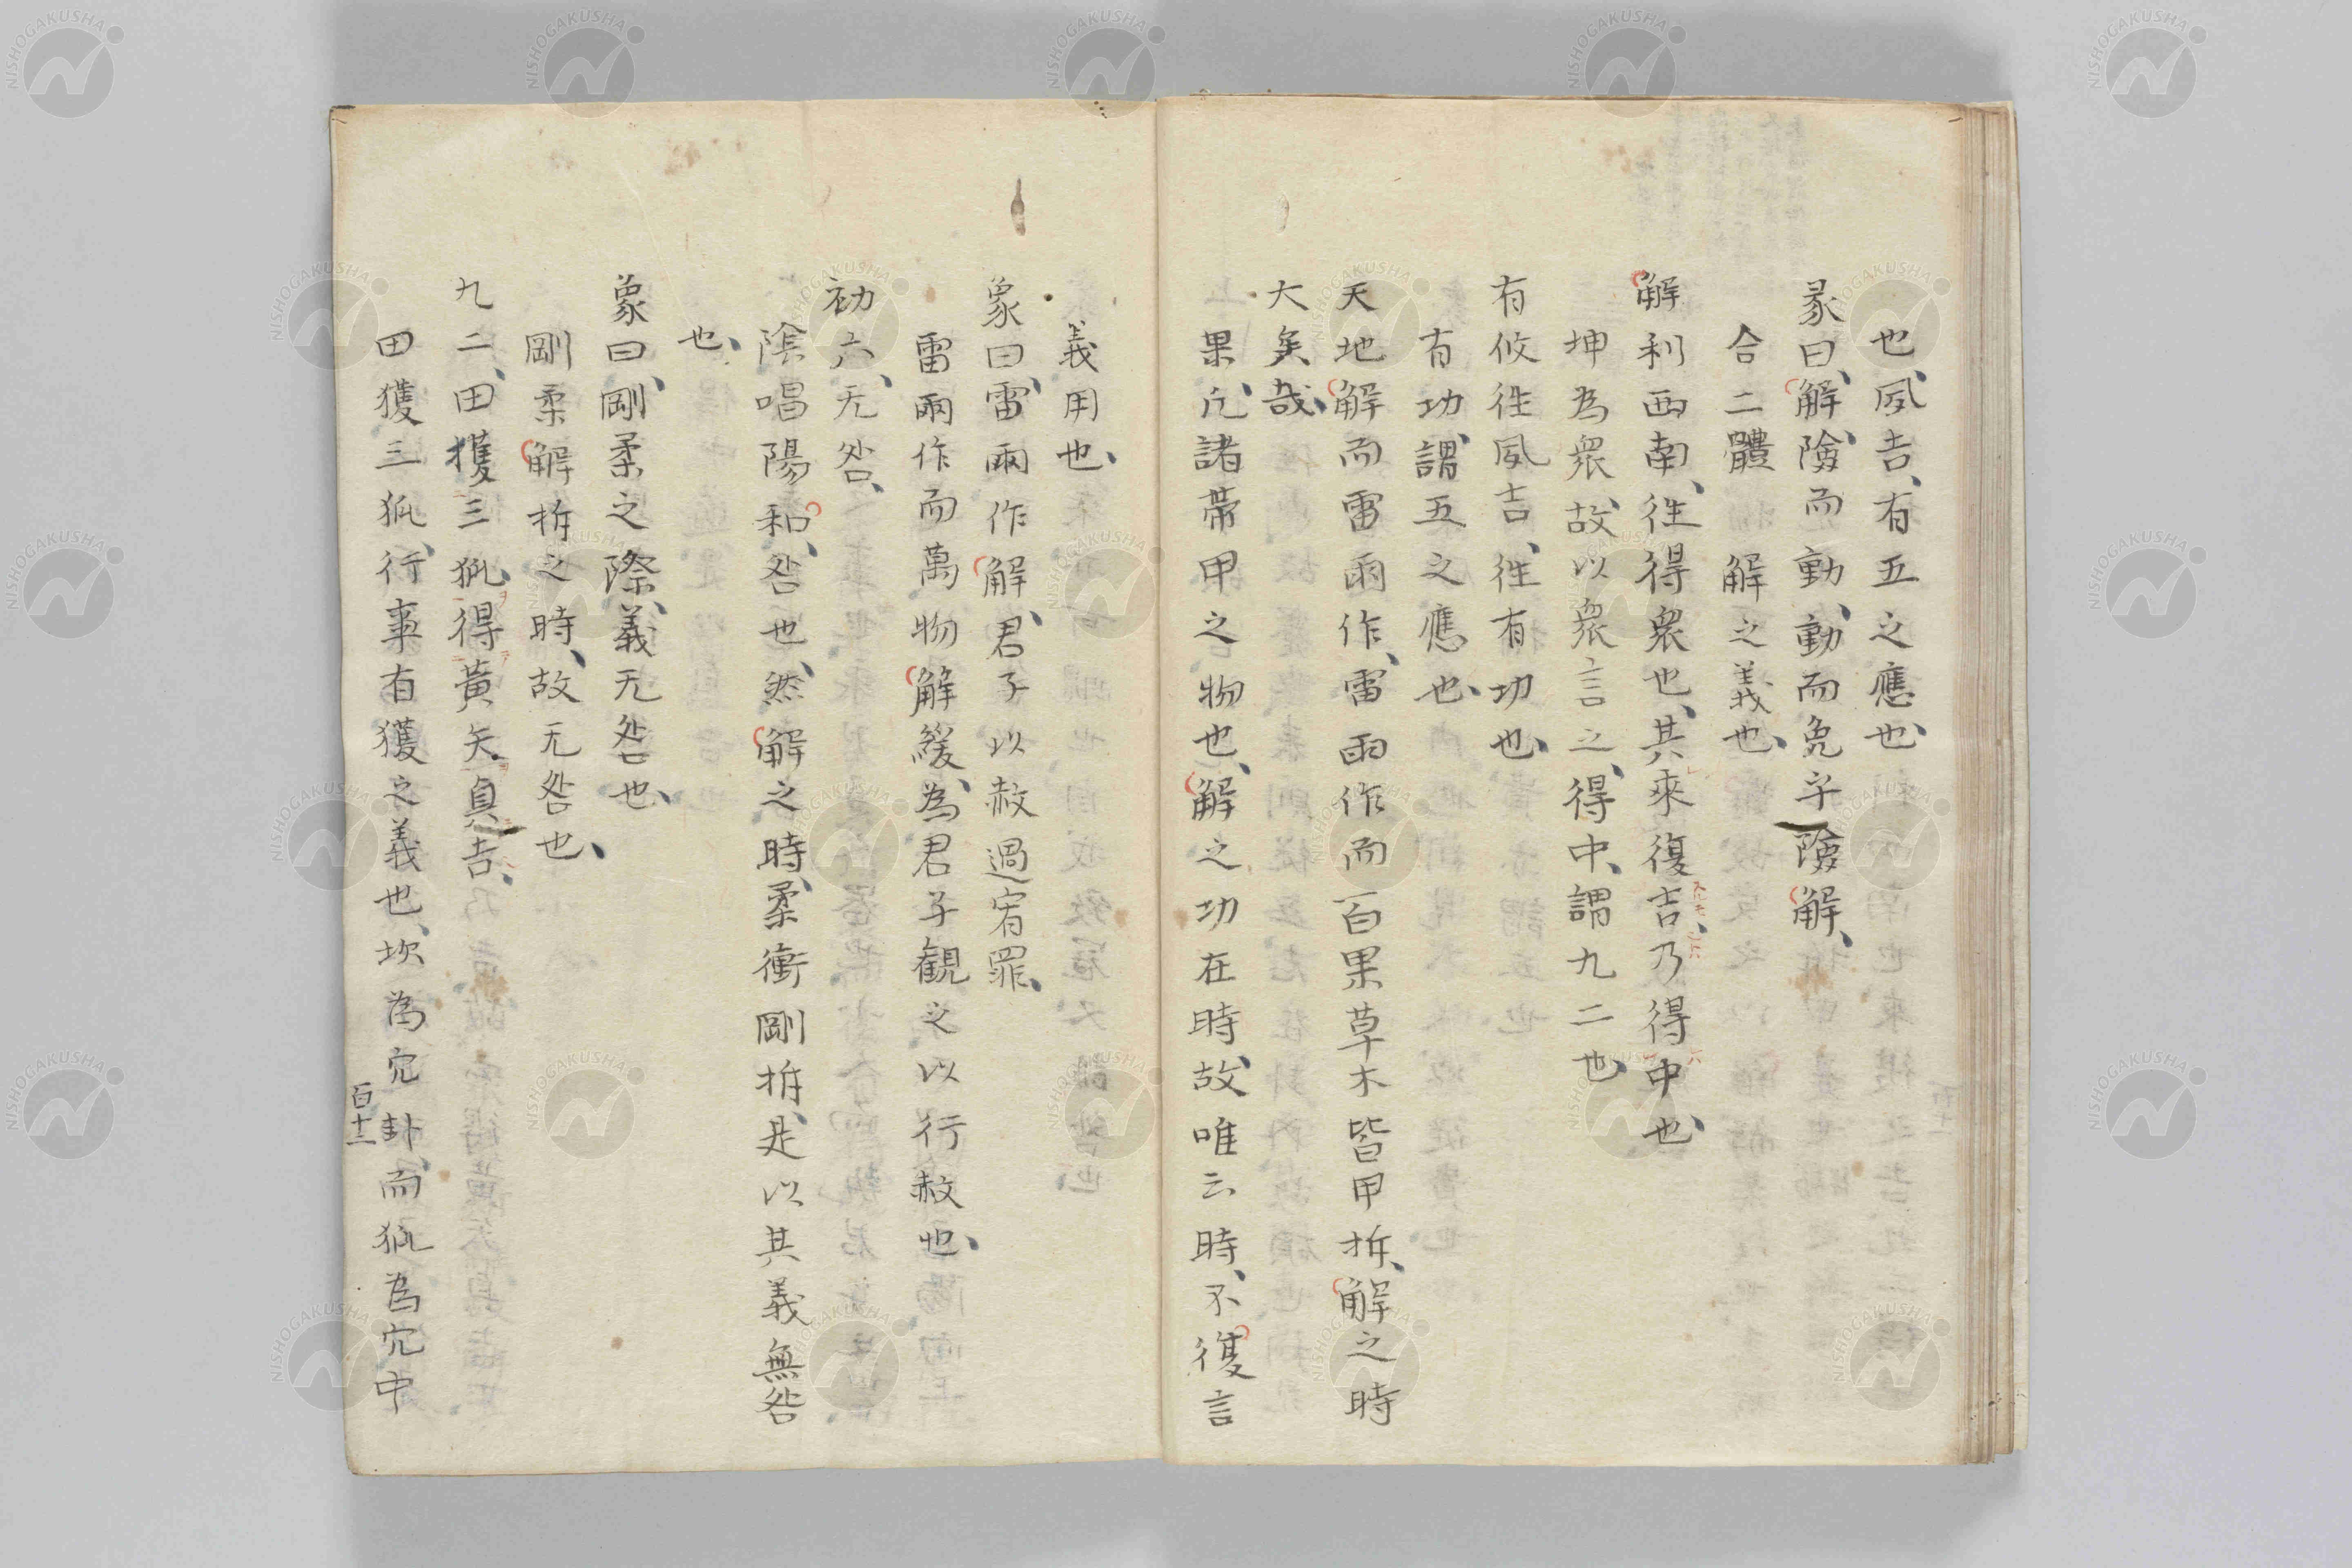 也、夙吉、有五之應也、
彖曰、解、險而動、動而免乎險解、
合二體　解之義也、
解利西南、往得衆也、其來復吉、乃得中也、
坤為衆、故以衆言之、得中、謂九二也、
有攸往夙吉、往有功也、
有功、謂五之應也、
天地解而雷雨作、雷雨作而百果草木皆甲拆、解之時
大矣哉、
果、凡諸帶甲之物也、解之功在時、故唯云時、不復言
義用也、
象曰、雷雨作解、君子以赦過宥罪、
雷雨作而萬物解緩、為君子観之以行赦也、
初六、无咎、
陰唱陽和、咎也、然解之時、柔衝剛拆、是以其義無咎
也、
象曰、剛柔之際、義无咎也、
剛柔解拆之時、故无咎也、
九二、田獲三狐、得黄矢、貞吉、
田獲三狐、行事有獲之義也、坎為穴卦、而狐為穴中
百十二
NISHOGAKUSHA